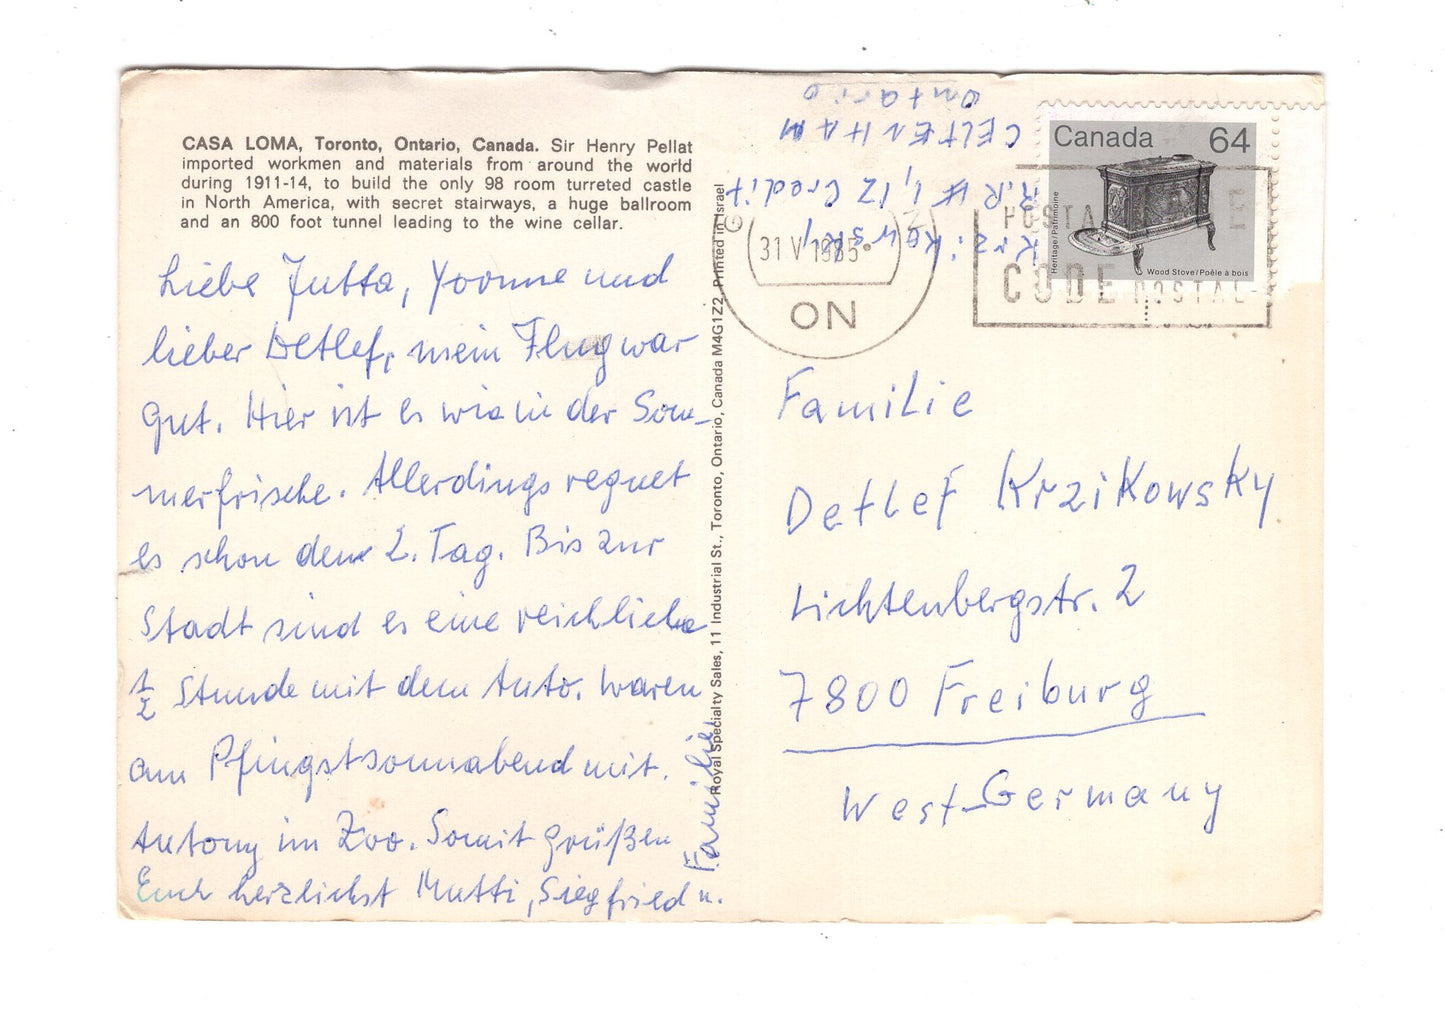 CASA LOMA, Toronto, Ontario, Canada. Sir Henry Pellat
imported workmen and materials from around the world
during 1911-14, to build the only 98 room turreted castle
in North America, with secret stairways, a huge ballroom
and an 800 foot tunnel leading to the wine cellar.
Liebe Jutta, Yvonne und
lieber Detlef, mein Flug war
gut. Hier ist es wie in der Som-
merfrische. Allerdings regnet
es schon den 2. Tag. Bis zur
Stadt sind es eine reichliche
1/2 Stunde mit dem Auto. Waren
am Pfingstsonnabend mit
Antony im Zoo. Somit grüßen
Euch herzlichst Mutti, Siegfried u.
Familie
Royal Specialty Sales, 11 Industrial St., Toronto, Ontario, Canada M4G1Z2. Printed in Israel
Krzikowsky
R.R # 1, 12 Credit
CELTENHAM
Ontario
31 V 1985
ON
POSTAL
CODE
POSTAL
Canada 64
Heritage/Patrimoine
Wood Stove/Poêle à bois
Familie
Detlef Krzikowsky
Lichtenbergstr. 2
7800 Freiburg
West-Germany